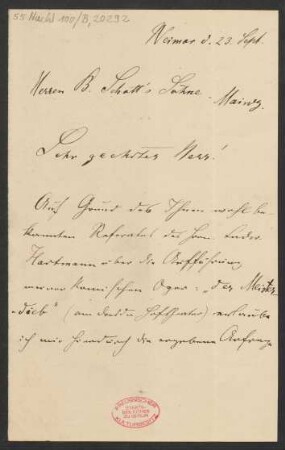 55 Nachl 100/B, 20292
Weimar d. 23. Sept.
Herren B. Schott's Söhne
Mainz.
Sehr geehrter Herr!
Auf Grund des Ihnen wohl be-
kannten Referates des Herrn Ludw.
Hartmann über die Aufführung
meiner komischen Oper „der Meister-
dieb“ (am Hoftheater) erlaube
ich mir hierdurch die ergebene Anfrage